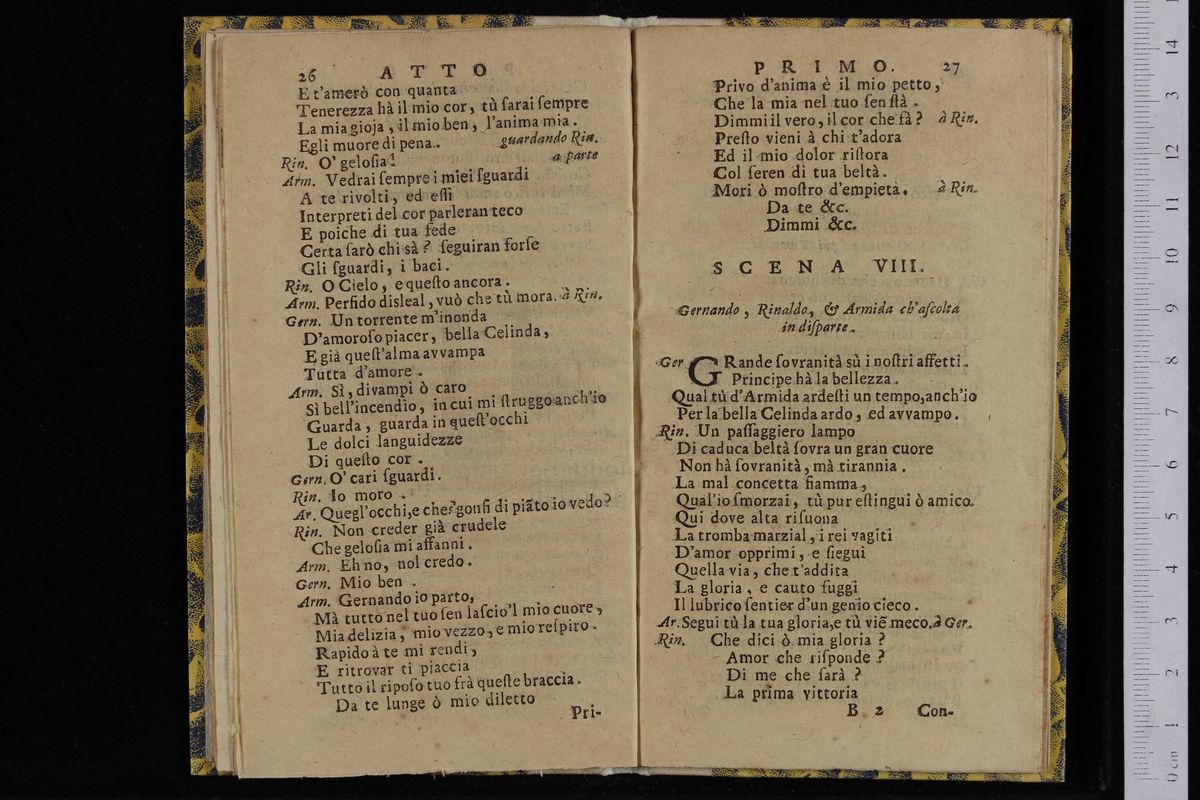 26 ATTO
E t'amerò con quanta
Tenerezza hà il mio cor, tù ſarai ſempre
La mia gioja, il mio ben, l'anima mia.
Egli muore di pena. guardando Rin.
a parte
Rin. O' geloſia!
Arm. Vedrai ſempre i miei ſguardi
A te rivolti, ed eſſi
Interpreti del cor parleran teco
E poiche di tua fede
Certa ſarò chi sà? ſeguiran forſe
Gli ſguardi, i baci.
Rin. O Cielo, e queſto ancora.
Arm. Perfido disleal, vuò che tù mora. à Rin.
Gern. Un torrente m'inonda
D'amoroſo piacer, bella Celinda,
E già queſt'alma avvampa
Tutta d'amore.
Arm. Sì, divampi ò caro
Sì bell'incendio, in cui mi ſtruggo anch'io
Guarda, guarda in queſt'occhi
Le dolci languidezze
Di queſto cor.
Gern. O' cari ſguardi.
Rin. Io moro.
Ar. Quegl'occhi, e che? gonfi di piãto io vedo?
Rin. Non creder già crudele
Che geloſia mi affanni.
Arm. Eh no, nol credo.
Gern. Mio ben.
Arm. Gernando io parto,
Mà tutto nel tuo ſen laſcio'l mio cuore,
Mia delizia, mio vezzo, e mio reſpiro.
Rapido à te mi rendi,
E ritrovar ti piaccia
Tutto il ripoſo tuo frà queſte braccia.
Da te lunge ò mio diletto
Pri-
PRIMO. 27
Privo d'anima è il mio petto,
Che la mia nel tuo ſen ſtà.
Dimmi il vero, il cor che fà? à Rin.
Preſto vieni à chi t'adora
Ed il mio dolor riſtora
Col ſeren di tua beltà.
Mori ò moſtro d'empietà. à Rin.
Da te &c.
Dimmi &c.
SCENA VIII.
Gernando, Rinaldo, & Armida ch'aſcolta
in diſparte.
Ger GRande ſovranità sù i noſtri affetti
Principe hà la bellezza.
Qual tù d'Armida ardeſti un tempo, anch'io
Per la bella Celinda ardo, ed avvampo.
Rin. Un paſſaggiero lampo
Di caduca beltà ſovra un gran cuore
Non hà ſovranità, mà tirannia.
La mal concetta fiamma,
Qual'io ſmorzai, tù pur eſtingui ò amico.
Qui dove alta riſuona
La tromba marzial, i rei vagiti
D'amor opprimi, e ſiegui
Quella via, che t'addita
La gloria, e cauto fuggi
Il lubrico ſentier d'un genio cieco.
Ar. Segui tù la tua gloria, e tù viẽ meco. à Ger.
Rin. Che dici ò mia gloria?
Amor che riſponde?
Di me che ſarà?
La prima vittoria
B 2 Con-
14
13
12
11
10
9
8
7
6
5
4
3
2
1
0 cm
3
2
1